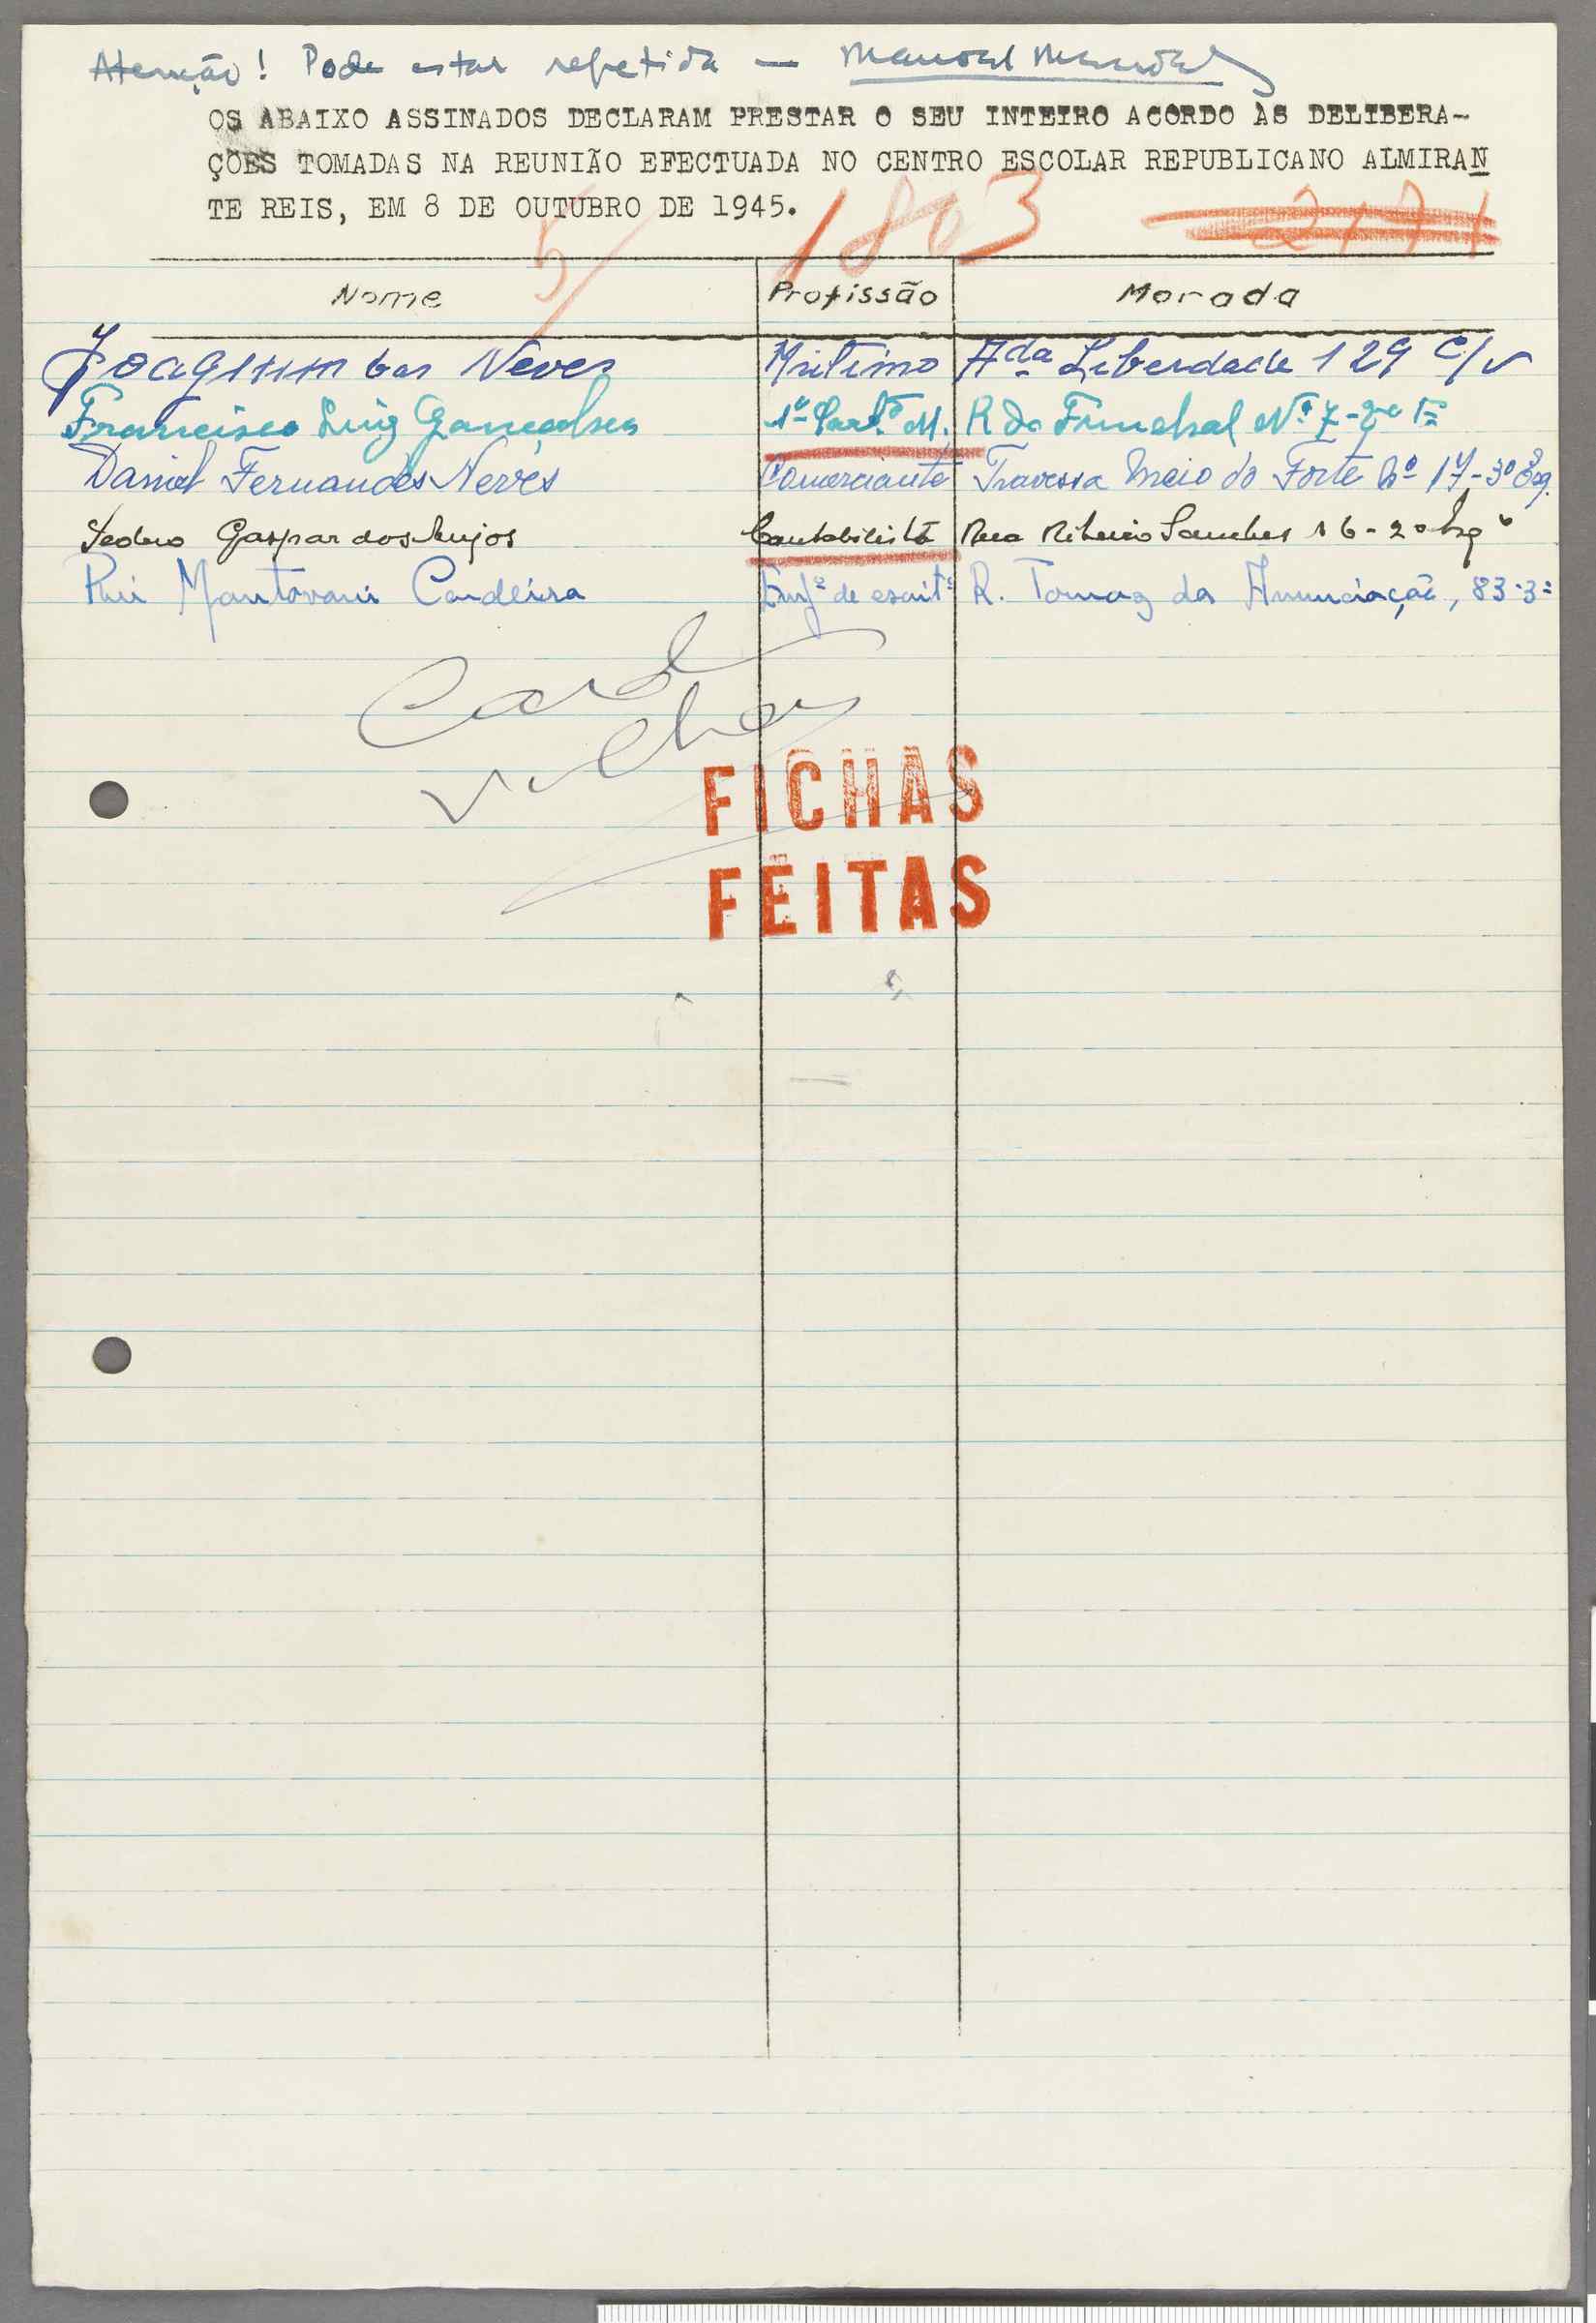 Atenção! Pode estar repetida — Manoel Mendes
OS ABAIXO ASSINADOS DECLARAM PRESTAR O SEU INTEIRO ACORDO ÀS DELIBERA-
ÇÕES TOMADAS NA REUNIÃO EFECTUADA NO CENTRO ESCOLAR REPUBLICANO ALMIRAN
TE REIS, EM 8 DE OUTUBRO DE 1945.
5/ 1803
Nome Profissão Morada
Joaquim das Neves Mritimo Ada Liberdade 129 c/v
Francisco Luiz Gonçalves R do Funchal Nº 7-2º
Daniel Fernandes Neves Comerciante Travessa Meio do Forte Nº 17-3º Esq.
Pedro Gaspar dos Anjos Contabilista Rua Ribeiro Sanches 16-2º Esqº
Rui Mantovani Candeira Empº de escritº R. Tomaz da Anunciação, 83-3º
FICHAS
FEITAS